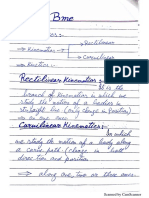 Bme
Rectilinear
→ Kinematics
→ Curvilinear
→ Kinetics -
Rectilinear Kinematics :- It is the
branch of kinematics in which we
study the motion of a bodies in
straight line (only change in Position)
→ in one axis.
Curvilinear Kinematics :- In which
we study the motion of a body along
a curve path. (Change is both
direction and position
→ along one, two or three axes.
Scanned by CamScanner